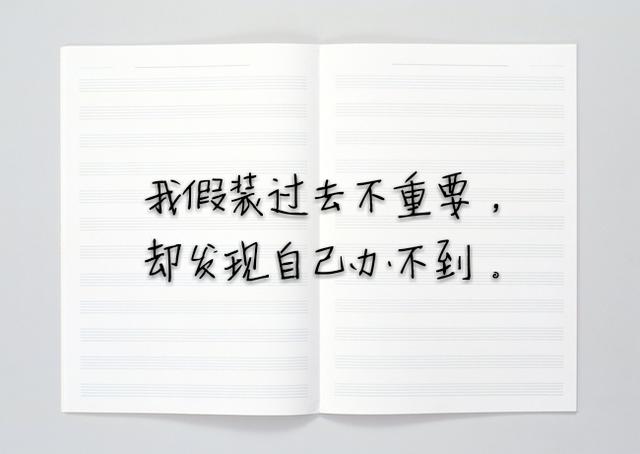 我假装过去不重要，
却发现自己办不到。